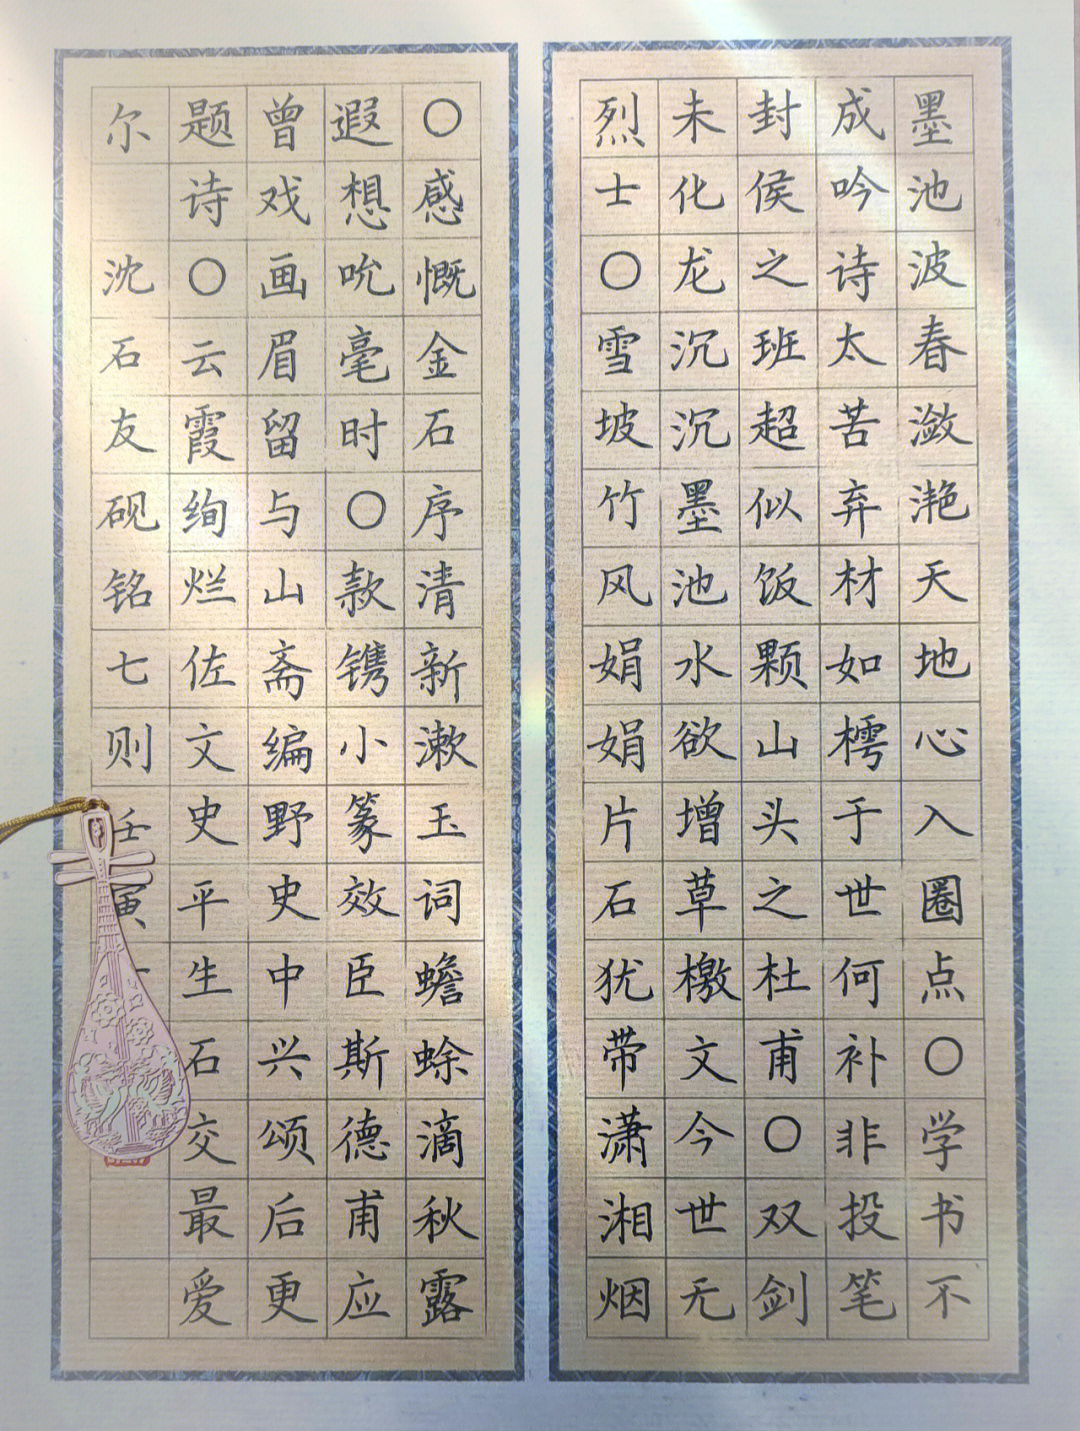 墨池波春潋滟天地心入圈点〇学书不
成吟诗太苦弃材如樗于世何补非投笔
封侯之班超似饭颗山头之杜甫〇双剑
未化龙沉沉墨池水欲增草檄文今世无
烈士〇雪坡竹风娟娟片石犹带潇湘烟
〇感慨金石序清新漱玉词蟾蜍滴秋露
遐想吮毫时〇款镌小篆效臣斯德甫应
曾戏画眉留与山斋编野史中兴颂后更
题诗〇云霞绚烂佐文史平生石交最爱
尔 沈石友砚铭七则壬寅